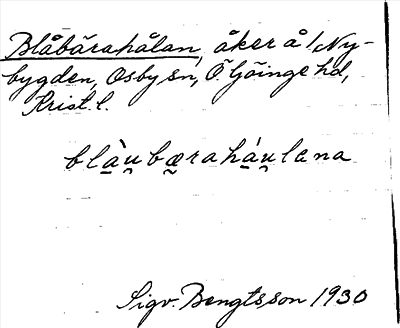 Blåbärahålan, åker å 1 Ny-
bygden, Osby sn, Ö. Göinge hd,
Krist. l.
blà̱u̯bæ̱rahá̱u̯lana
Sigv. Bengtsson 1930